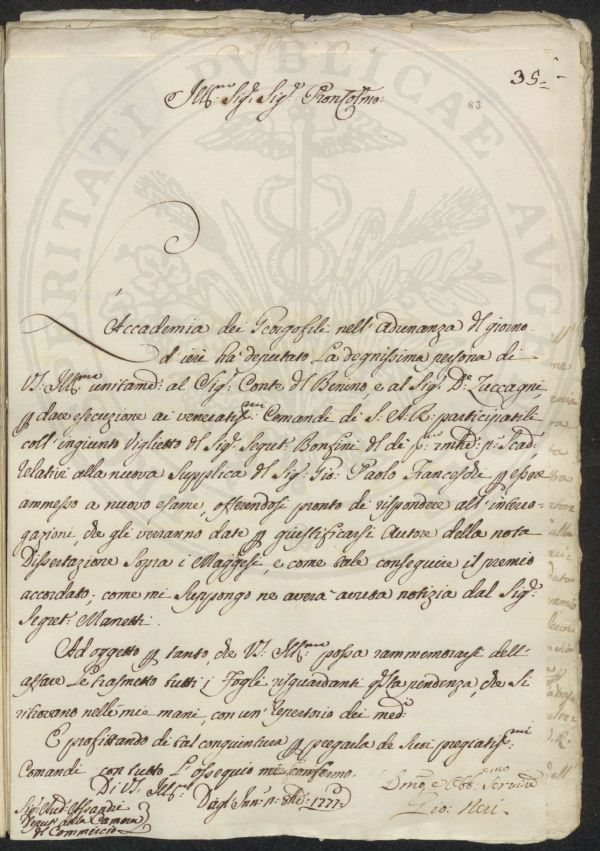 35.
63
Ill.mo Sig.r Sig.r Pron Col.mo
Accademia dei Georgofili nell'adunanza del giorno
d'ieri ha deputato la degnissima persona di
VS. Ill.ma unitam.e al Sig.r Conte del Benino, e al Sig.r D.r Zuccagni,
p dare esecuzione ai veneratis.mi Comandi di S. A. R. participateli
coll'ingiunto Viglietto del Sig.r Segret.
relativi alla nuova Supplica del Sig.r Gio: Paolo Franceschi p esser
ammesso a nuovo esame, offerendosi pronto di rispondere all'interro-
gazioni, che gli verranno date p giustificarsi Autore della nota
Dissertazione sopra i Maggesi, e come tale conseguire il premio
accordato; come mi suppongo ne averà avuta notizia dal Sig.r
Segret. Manetti.
Ad oggetto p tanto, che VS. Ill.ma possa rammemorarsi dell'
affare Le trasmetto tutti i fogli risguardanti q.sta pendenza, che si
ritrovano nelle mie mani, con un repertorio dei med.i
E profittando di tal congiuntura p pregarla de suoi pregiatis.mi
Comandi con tutto l'ossequio mi confermo.
Di VS. Ill.ma
1777
Dmo, e Obb.mo Servire
Sig.r Aud.
della Camera
di Commercio